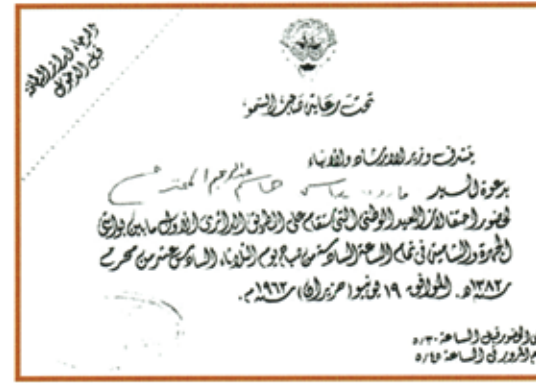 الرجاء ابراز البطاقة
قبل الدخول
تحت رعاية صاحب السمو
يتشرف وزير الارشاد والأنباء
بدعوة السيد
لحضور احتفالات العيد الوطني التي ستقام على الطريق الدائري الأول ما بين بوابتي
الجهرة والشامية في تمام الساعة السادسة من صباح يوم الثلاثاء السادس عشر من محرم
سنة ١٣٨٢هـ. الموافق ١٩ يونيو (حزيران) سنة ١٩٦٢م.
الحضور قبل الساعة ٥/٣٠
المرور في الساعة ٥/٤٥